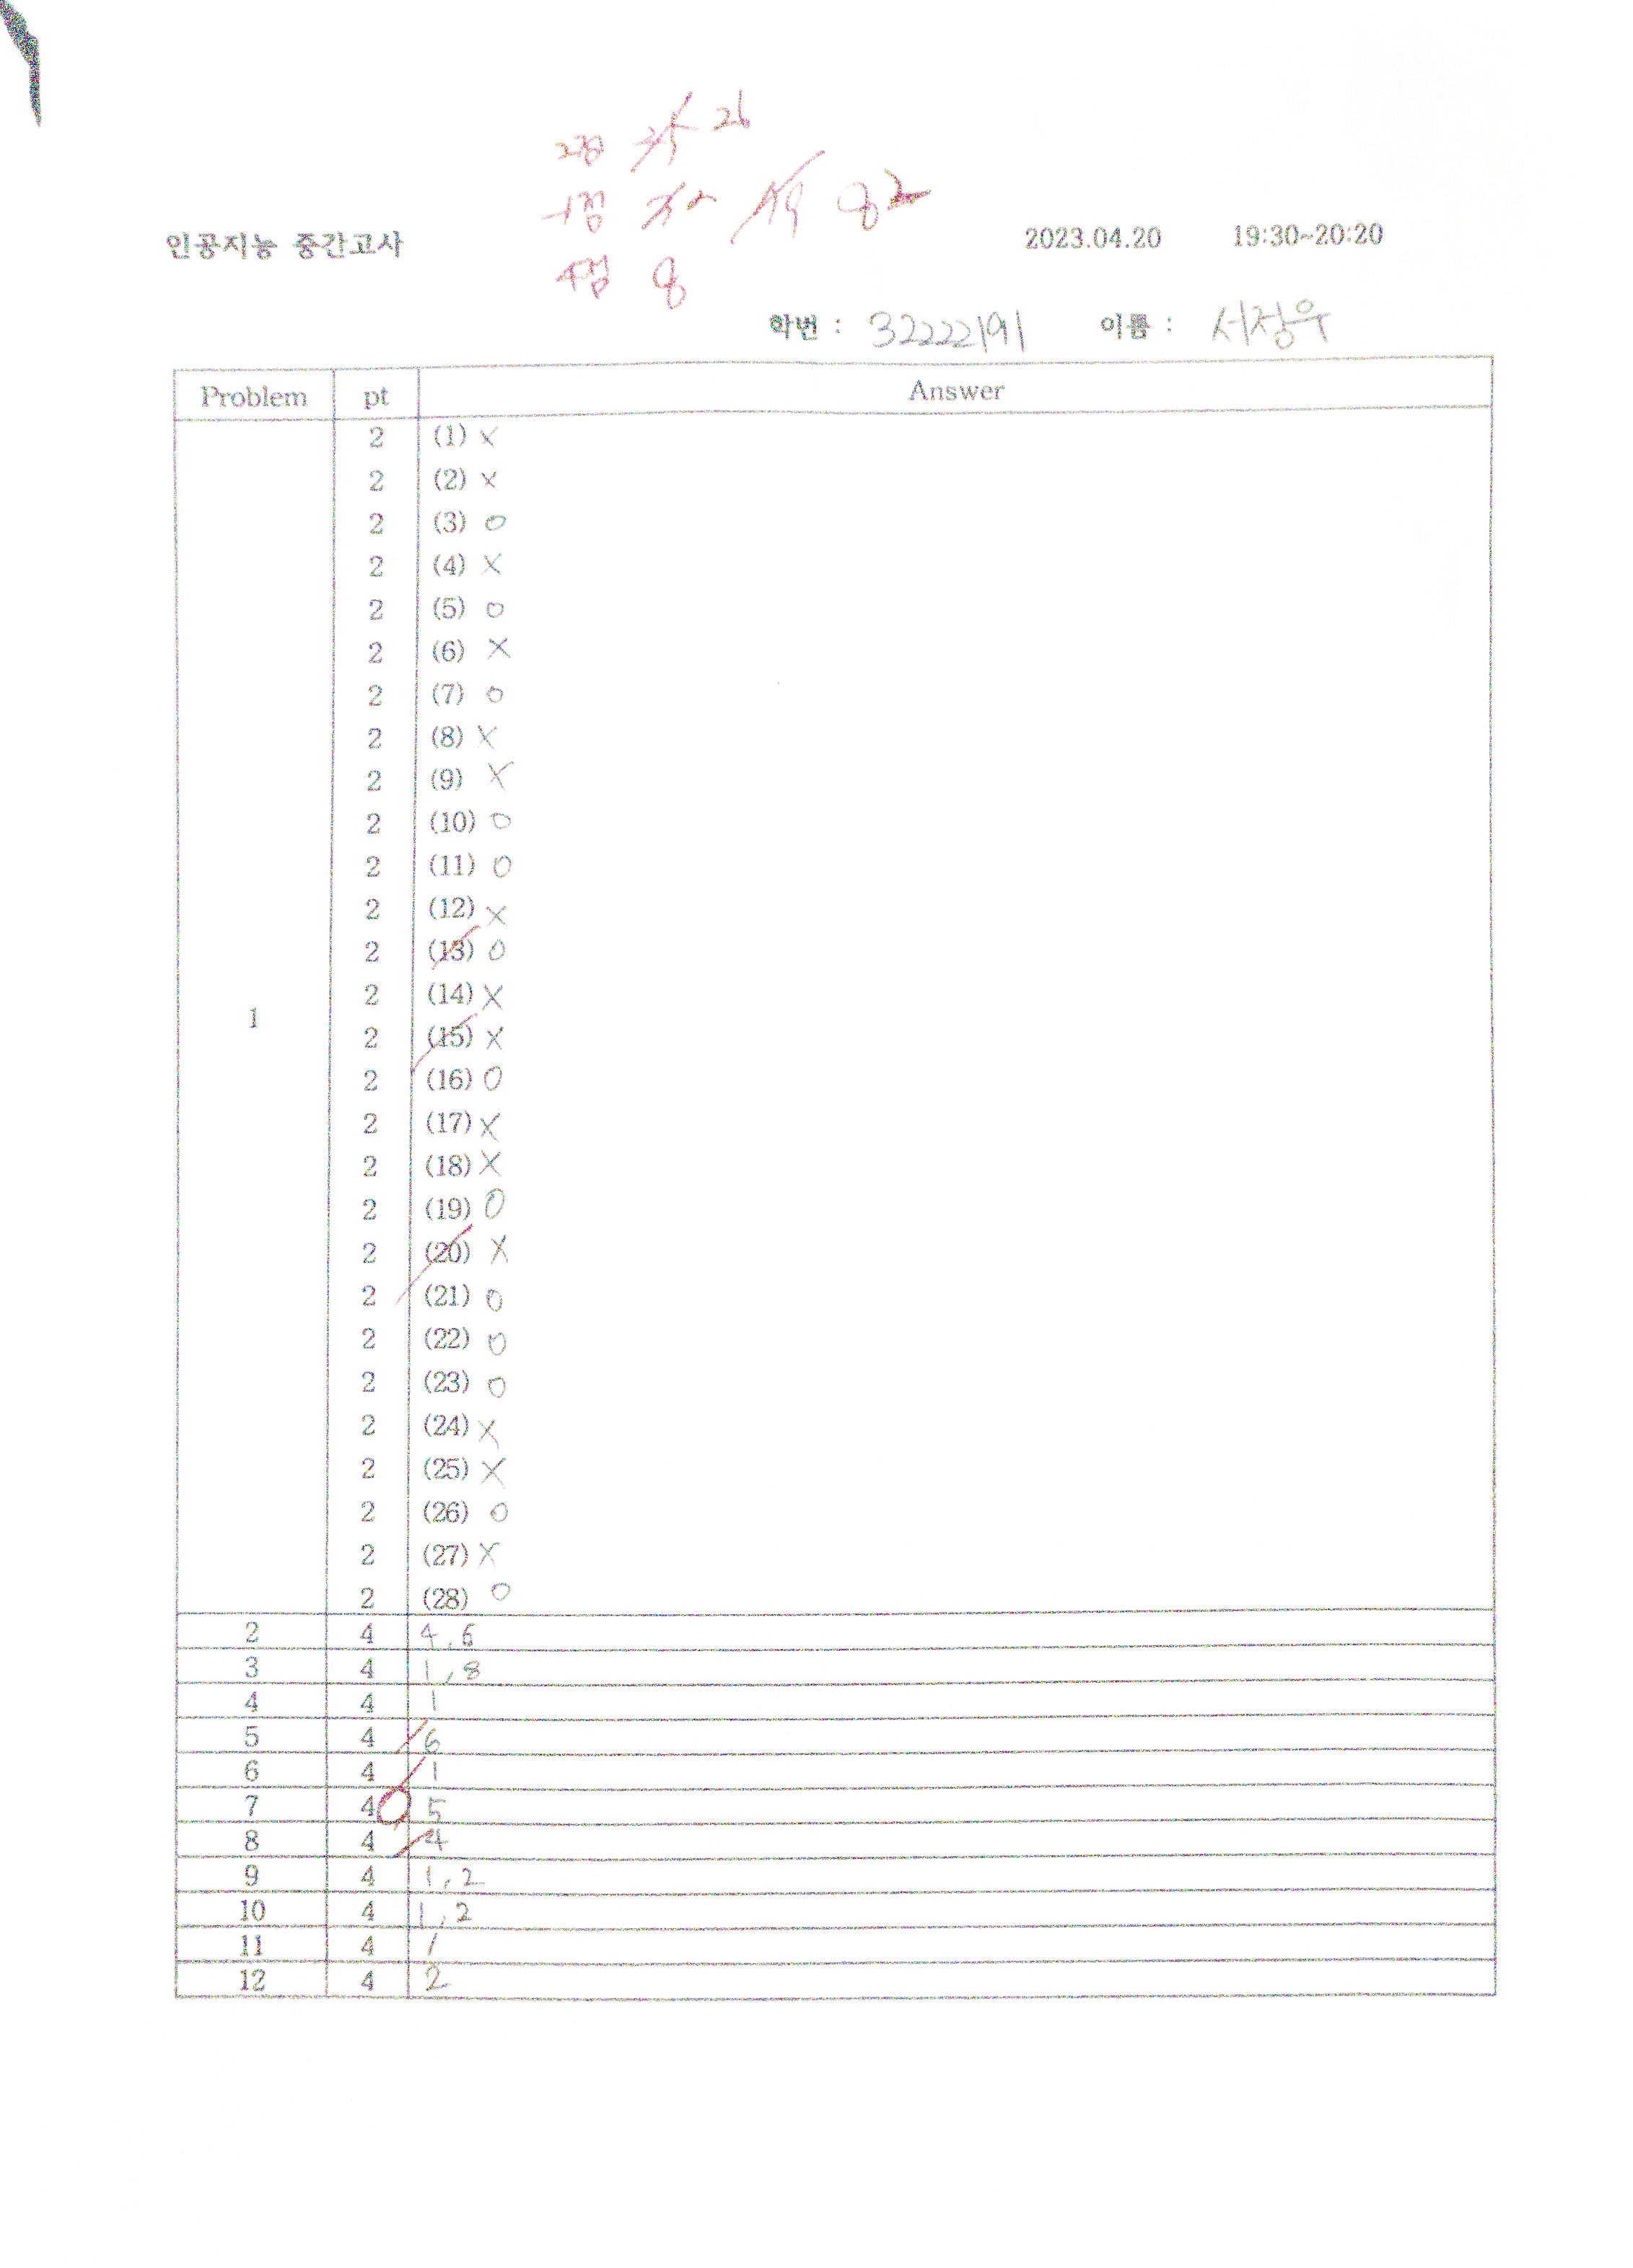 26
82
인공지능 중간고사 2023.04.20 19:30~20:20
4점 8
학번 : 32222191 이름 : 서정우
Problem pt Answer
2 (1) X
2 (2) X
2 (3) O
2 (4) X
2 (5) O
2 (6) X
2 (7) O
2 (8) X
2 (9) X
2 (10) O
2 (11) O
2 (12) X
2 (13) O
2 (14) X
1
2 (15) X
2 (16) O
2 (17) X
2 (18) X
2 (19) O
2 (20) X
2 (21) O
2 (22) O
2 (23) O
2 (24) X
2 (25) X
2 (26) O
2 (27) X
2 (28) O
2 4 4, 6
3 4 1, 8
4 4 1
5 4 6
6 4 1
7 4 5
8 4 4
9 4 1, 2
10 4 1, 2
11 4 1
12 4 2